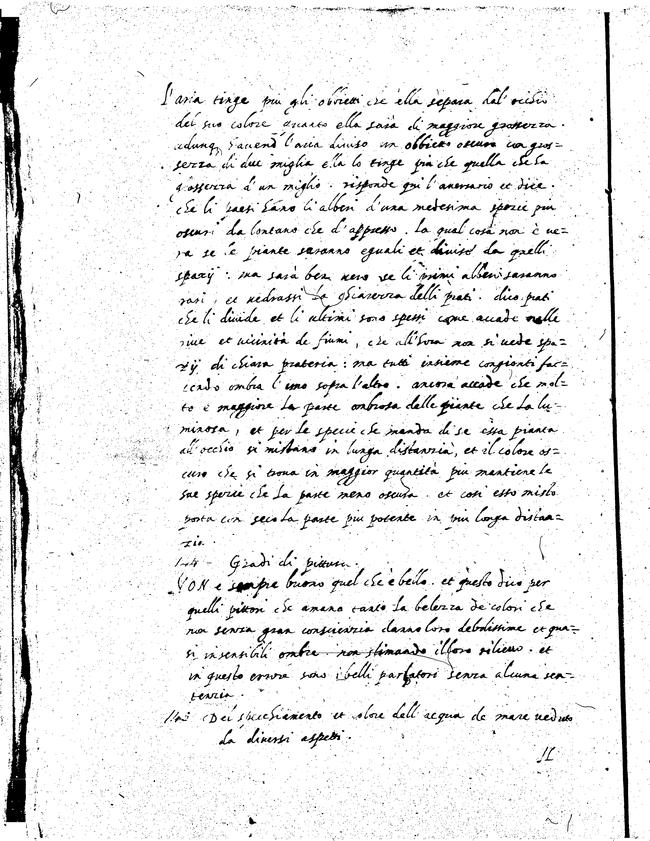 L'aria tinge piu gli obbietti che ella separa dal' occhio
del suo colore quanto ella sara di maggiore grossezza.
adunq havend l'aria diviso un obbieto oscuro con gros=
sezza di due miglia ella lo tinge piu che quella che ha
grossezza d'un miglio. risponde qui l'aversario et dice.
che li paesi hano li alberi d'una medesima spezie piu
oscuri da lontano che d'appresso. la qual cosa non è ve=
ra se le piante saranno eguali et divise da quelli
spazij: ma sarà ben vero se li primi alberi saranno
rari, et vedrassi la chiarezza delli prati. dico prati
che li divide et li ultimi sono spessi come accade nelle
rive et vicinità de fiumi, che all'hora non si vede spa=
zij di chiara prateria: ma tutti insieme congionti fac=
cendo ombra l'uno sopra l'altro. ancora accade che mol=
to è maggiore la parte ombrosa delle piante che la lu=
minosa, et per le specie che manda di se essa pianta
all'occhio si mistano in lunga distanzia, et il colore os=
curo che si trova in maggior quantità piu mantiene le
sue spezie che la parte meno oscura. et cosi esso misto
porta con seco la parte piu potente in piu longa distan=
zia.
144 - Gradi di pittura.
NON è sempre buono quel che è bello. et questo dico per
quelli pittori che amano tanto la belezza de colori che
non senza gran conscienzia danno loro debolissime et qua=
si insensibili ombre non stimando illoro rilievo. et
in questo errore sono i belli parlatori senza alcuna sen=
tenzia.
145 Del specchiamento et colore dell'acqua de mare veduto
da diversi aspetti.
IL